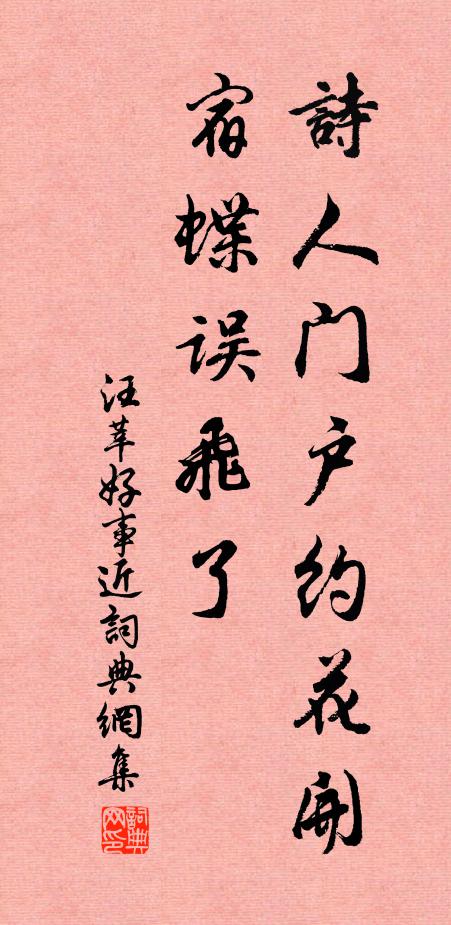 詩人门户约花開
宿蝶误飛了
汪莘好事近詞典網集
詞典网印